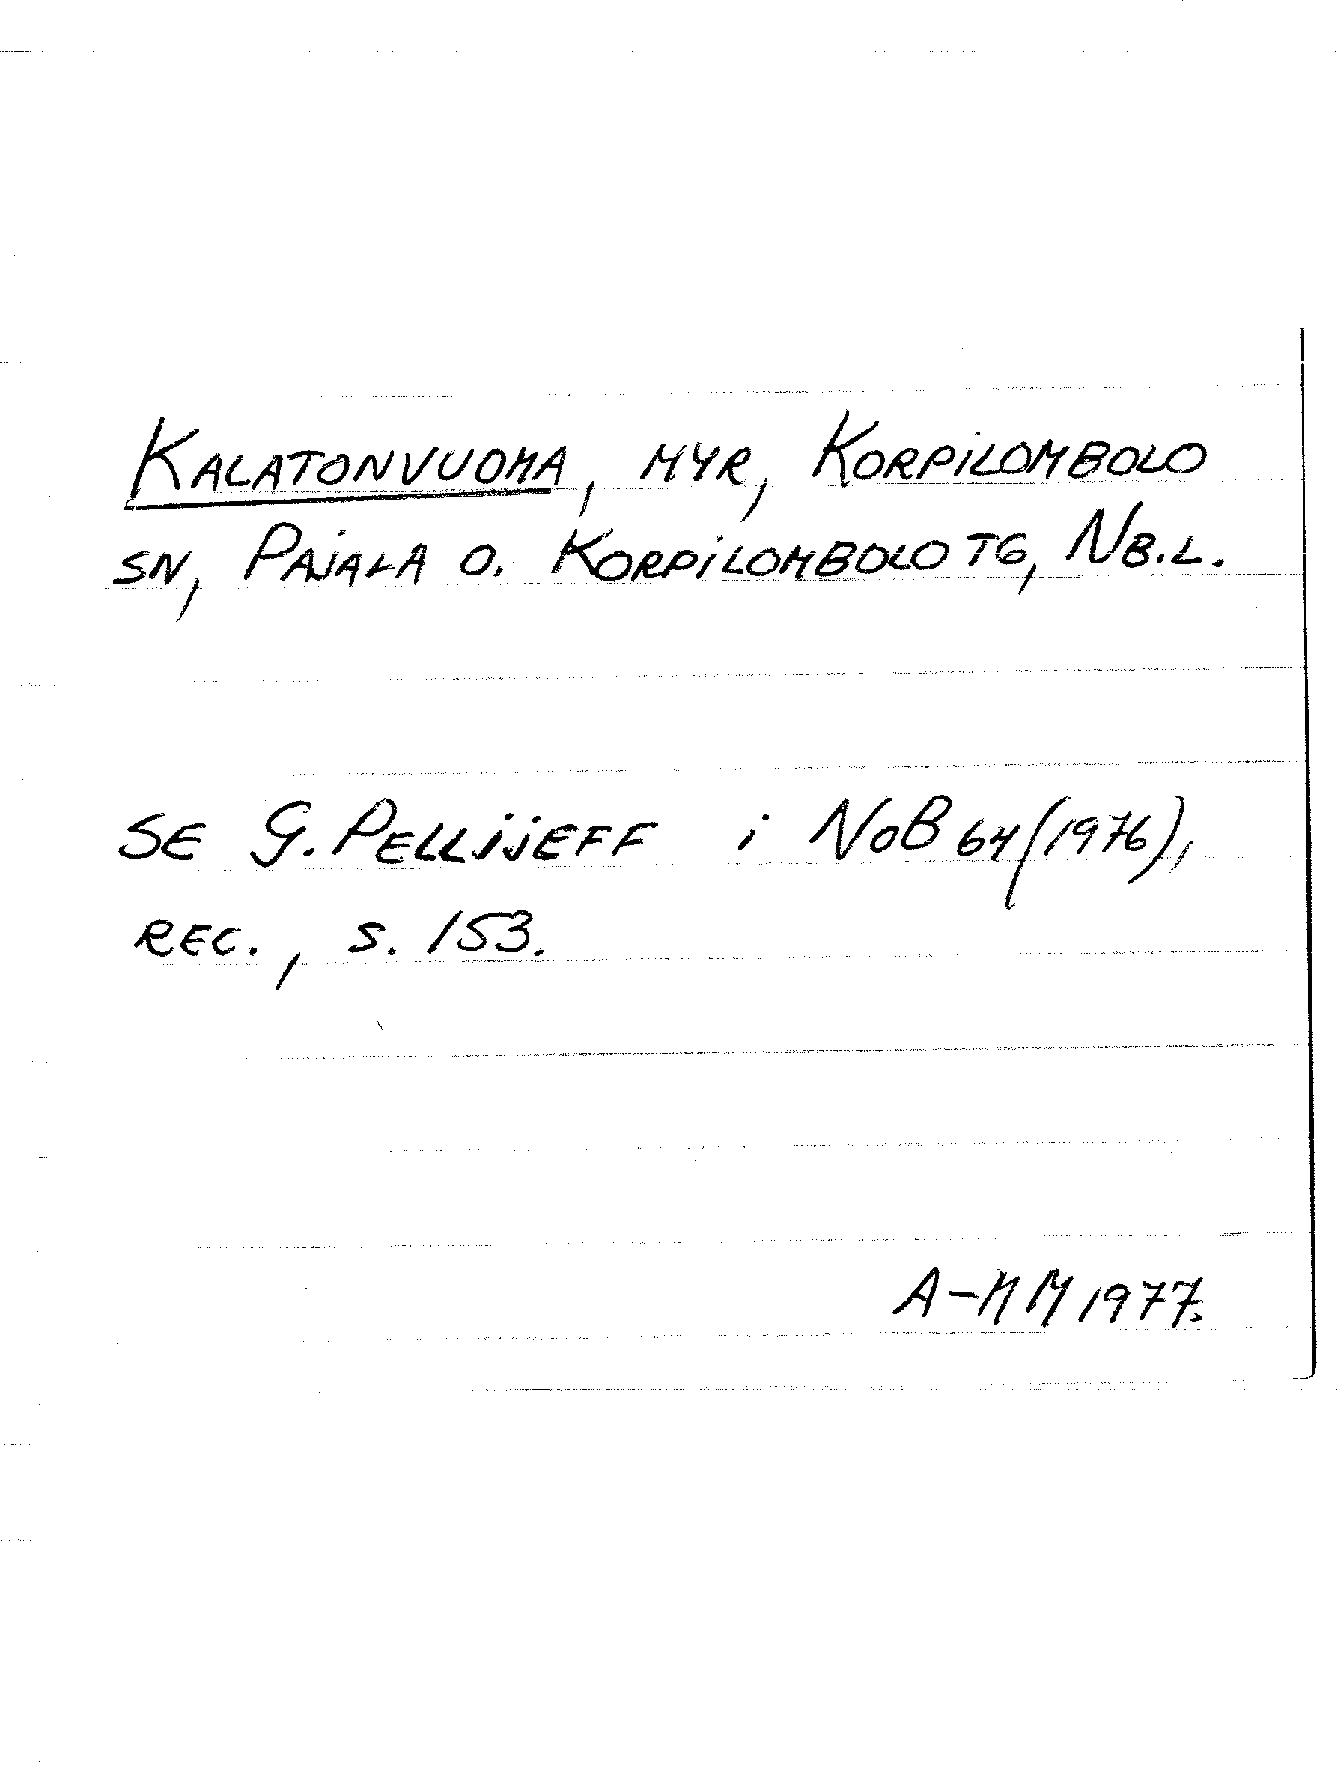 KALATONVUOMA, MYR, KORPILOMBOLO
SN, PAJALA O. KORPILOMBOLO TG, NB.L.
SE G. PELLIJEFF i NoB 64 (1976),
REC., S. 153.
A-MM 1977.